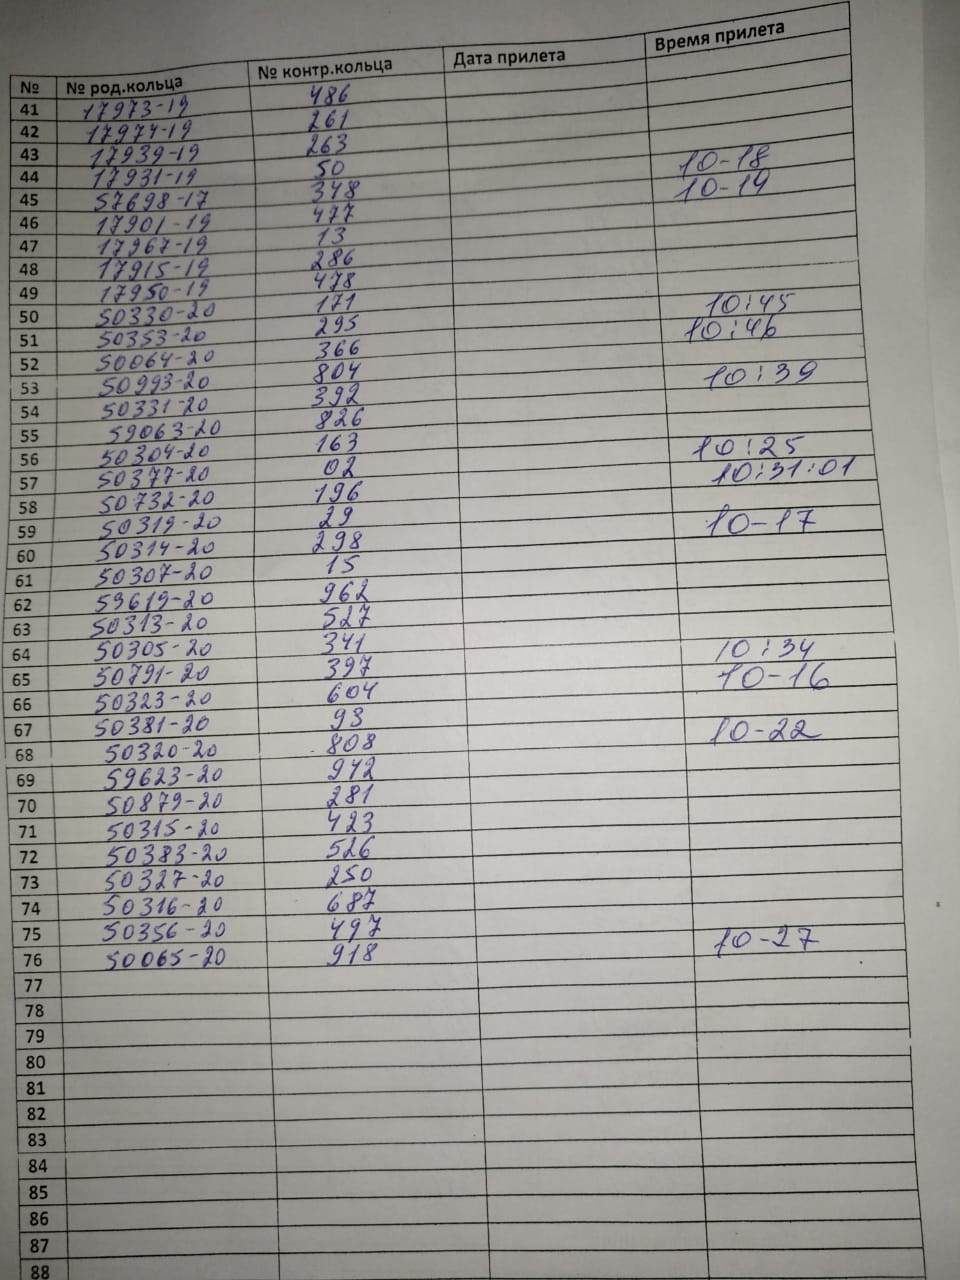 № № род.кольца № контр.кольца Дата прилета Время прилета
41 17973-19 486
42 17974-19 261
43 17939-19 263
44 17931-19 50
45 57698-17 348 10-18
46 17901-19 477 10-19
47 17967-19 13
48 17915-19 286
49 17950-19 478
50 50330-20 171
51 50353-20 295 10:45
52 50064-20 366 10:46
53 50993-20 804
54 50331-20 392 10:39
55 59063-20 826
56 50304-20 163
57 50377-20 02 10:25
58 50732-20 196 10:31:01
59 50319-20 29
60 50314-20 298 10-17
61 50307-20 15
62 59619-20 962
63 50313-20 527
64 50305-20 341
65 50791-20 397 10:34
66 50323-20 604 10-16
67 50381-20 93
68 50320-20 808 10-22
69 59623-20 942
70 50879-20 281
71 50315-20 423
72 50383-20 526
73 50327-20 250
74 50316-20 687
75 50356-20 497
76 50065-20 918 10-27
77
78
79
80
81
82
83
84
85
86
87
88